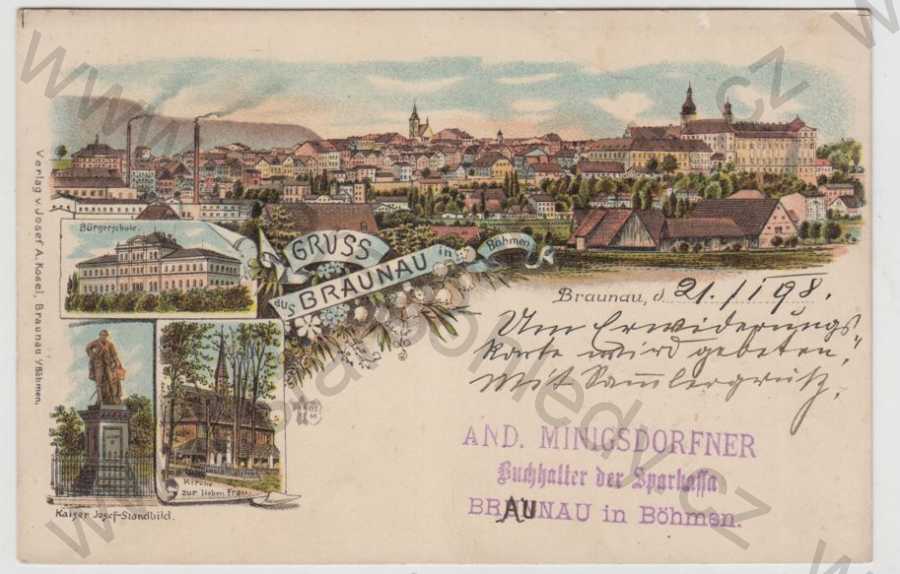 Verlag v. Josef A. Kosel, Braunau i/Böhmen.
Bürgerschule.
GRUSS
aus BRAUNAU in
Böhmen
Kaiser Josef-Standbild.
Kirche
zur lieben Frau
Braunau, d 21./I 98.
Um Erwiderungs
karte wird gebeten,"
Mit Sammlergruß,
AND. MINIGSDORFNER
Buchhalter der Sparkassa
BRAUNAU in Böhmen.